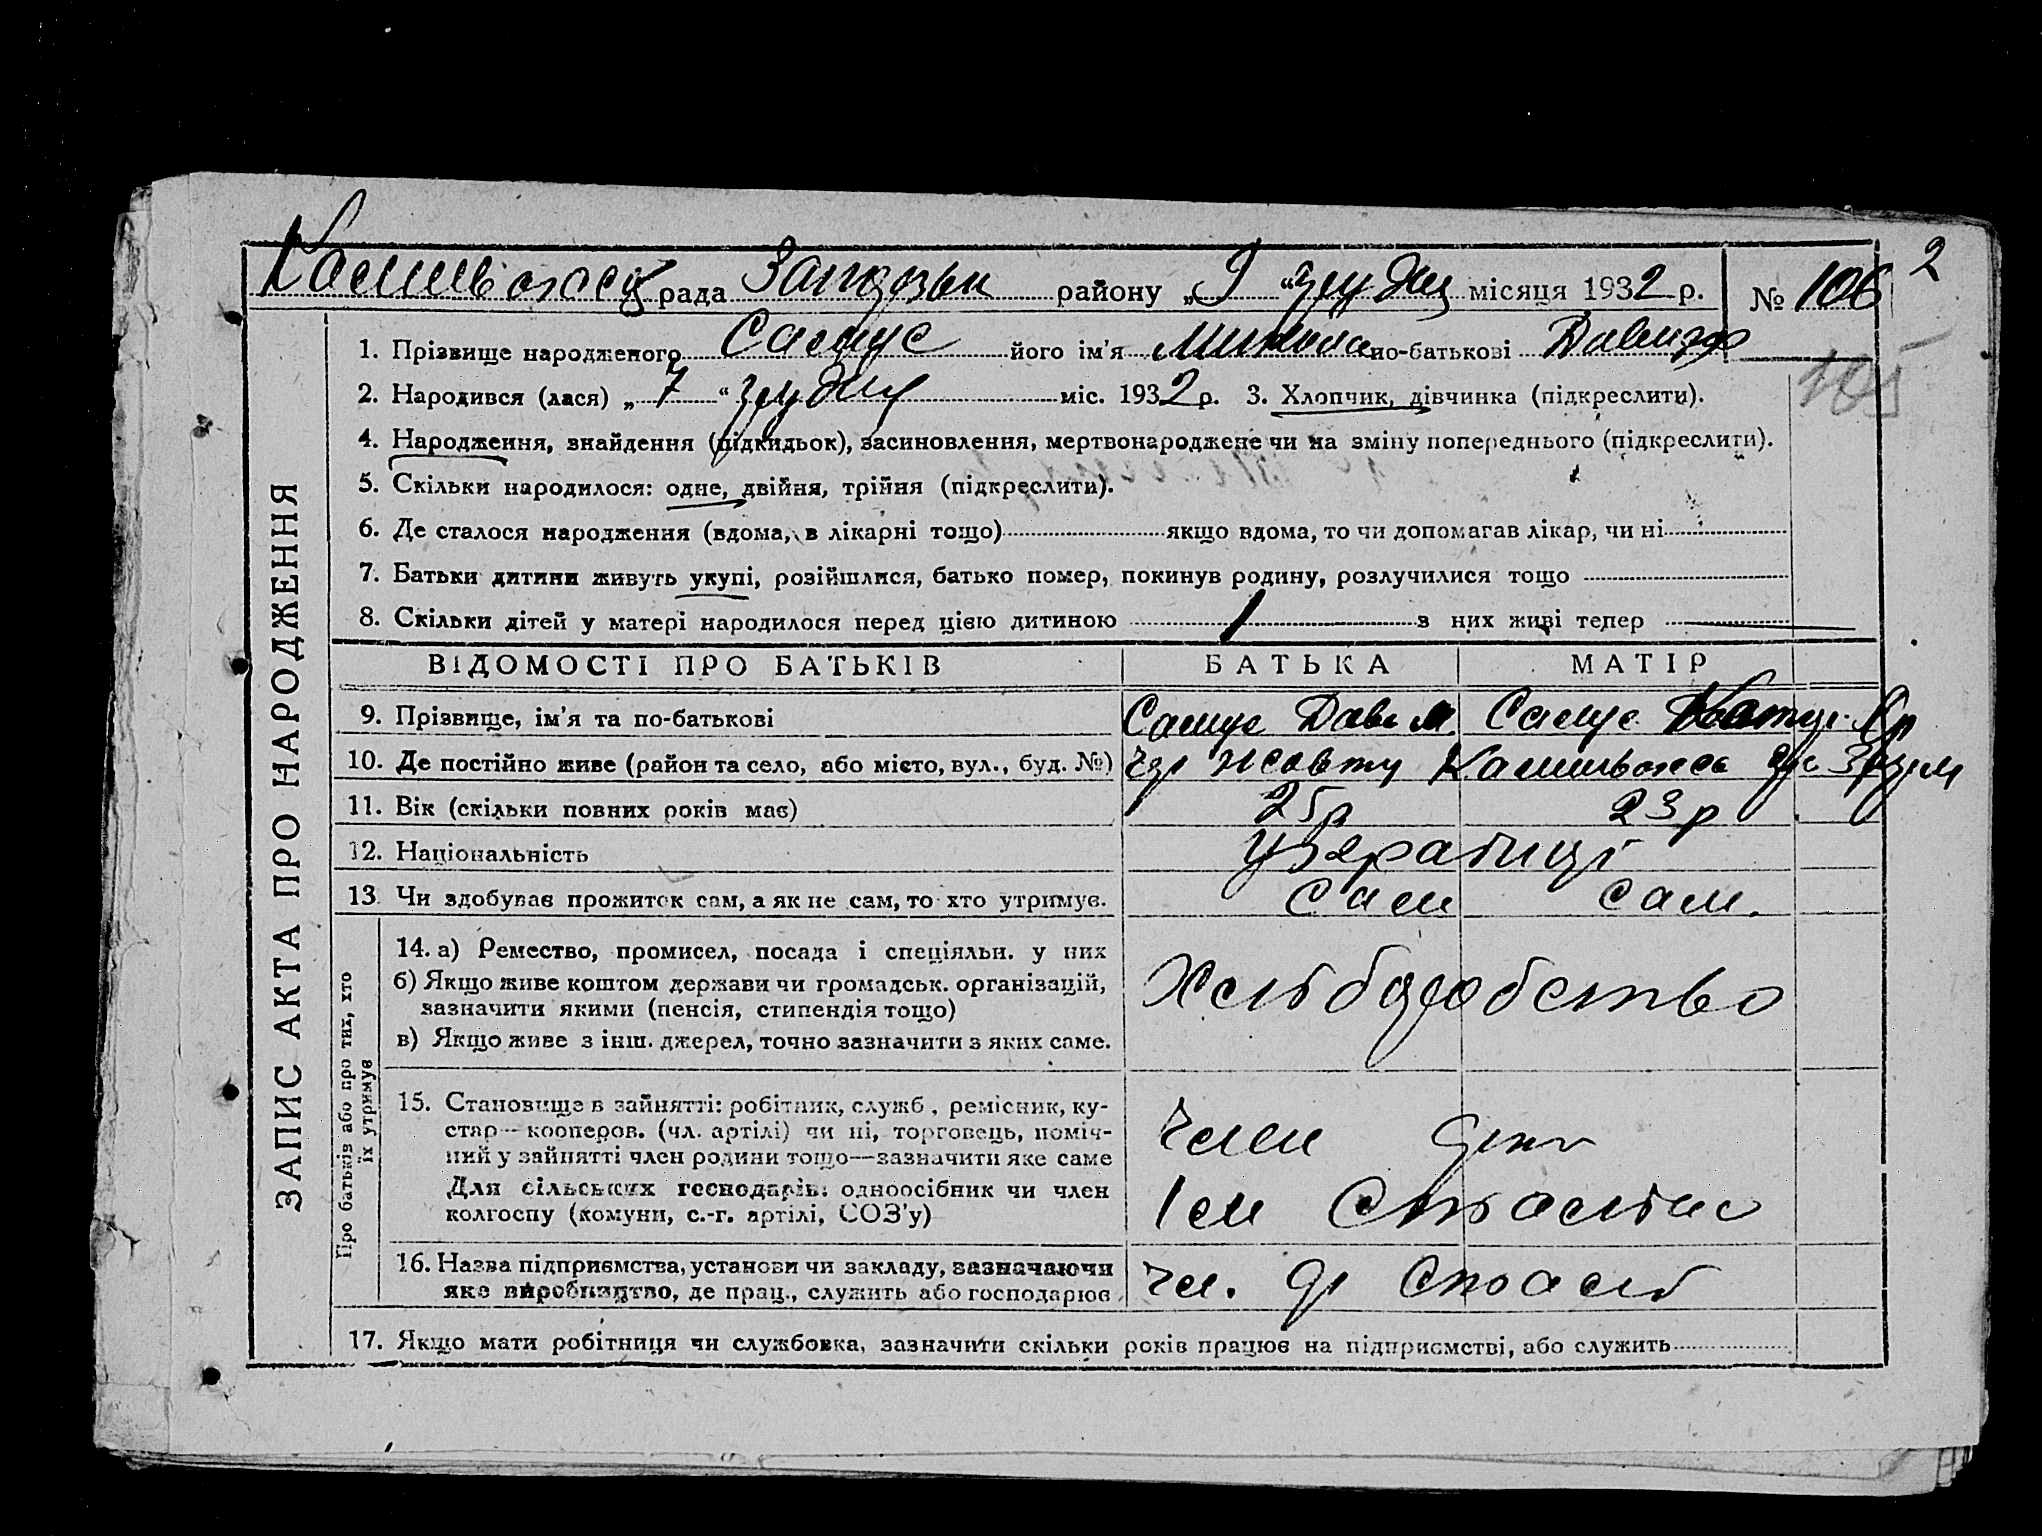 рада району „9“ грудня місяця 1932 р. № 106 2
1. Прізвище народженого Самус його ім'я Микола по-батькові Давидо
105
2. Народився (лася) „7“ грудня міс. 1932 р. 3. Хлопчик, дівчинка (підкреслити).
4. Народження, знайдення (підкидьок), засиновлення, мертвонароджене чи на зміну попереднього (підкреслити).
5. Скільки народилося: одне, двійня, трійня (підкреслити).
6. Де сталося народження (вдома, в лікарні тощо) якщо вдома, то чи допомагав лікар, чи ні
7. Батьки дитини живуть укупі, розійшлися, батько помер, покинув родину, розлучилися тощо
8. Скільки дітей у матері народилося перед цією дитиною 1 з них живі тепер —
ЗАПИС АКТА ПРО НАРОДЖЕННЯ
ВІДОМОСТІ ПРО БАТЬКІВ БАТЬКА МАТІР
9. Прізвище, ім'я та по-батькові Самус Дави М. Самус
10. Де постійно живе (район та село, або місто, вул., буд. №)
11. Вік (скільки повних років має) 25 р 23 р
12. Національність українці
13. Чи здобуває прожиток сам, а як не сам, то хто утримує. сам сам.
Про батьків або про тих, хто
їх утримує
14. а) Ремество, промисел, посада і спеціяльн. у них
б) Якщо живе коштом держави чи громадськ. організацій,
зазначити якими (пенсія, стипендія тощо)
в) Якщо живе з інш. джерел, точно зазначити з яких саме.
Хліборобство
15. Становище в зайнятті: робітник, служб., ремісник, ку-
стар—кооперов. (чл. артілі) чи ні, торговець, поміч-
ний у зайнятті член родини тощо—зазначити яке саме
Для сільських господарів: одноосібник чи член
колгоспу (комуни, с.-г. артілі, СОЗ'у)
член
ім Сталіна
16. Назва підприємства, установи чи закладу, зазначаючи
яке виробництво, де прац., служить або господарює
чл. Сталі
17. Якщо мати робітниця чи службовка, зазначити скільки років працює на підприємстві, або служить